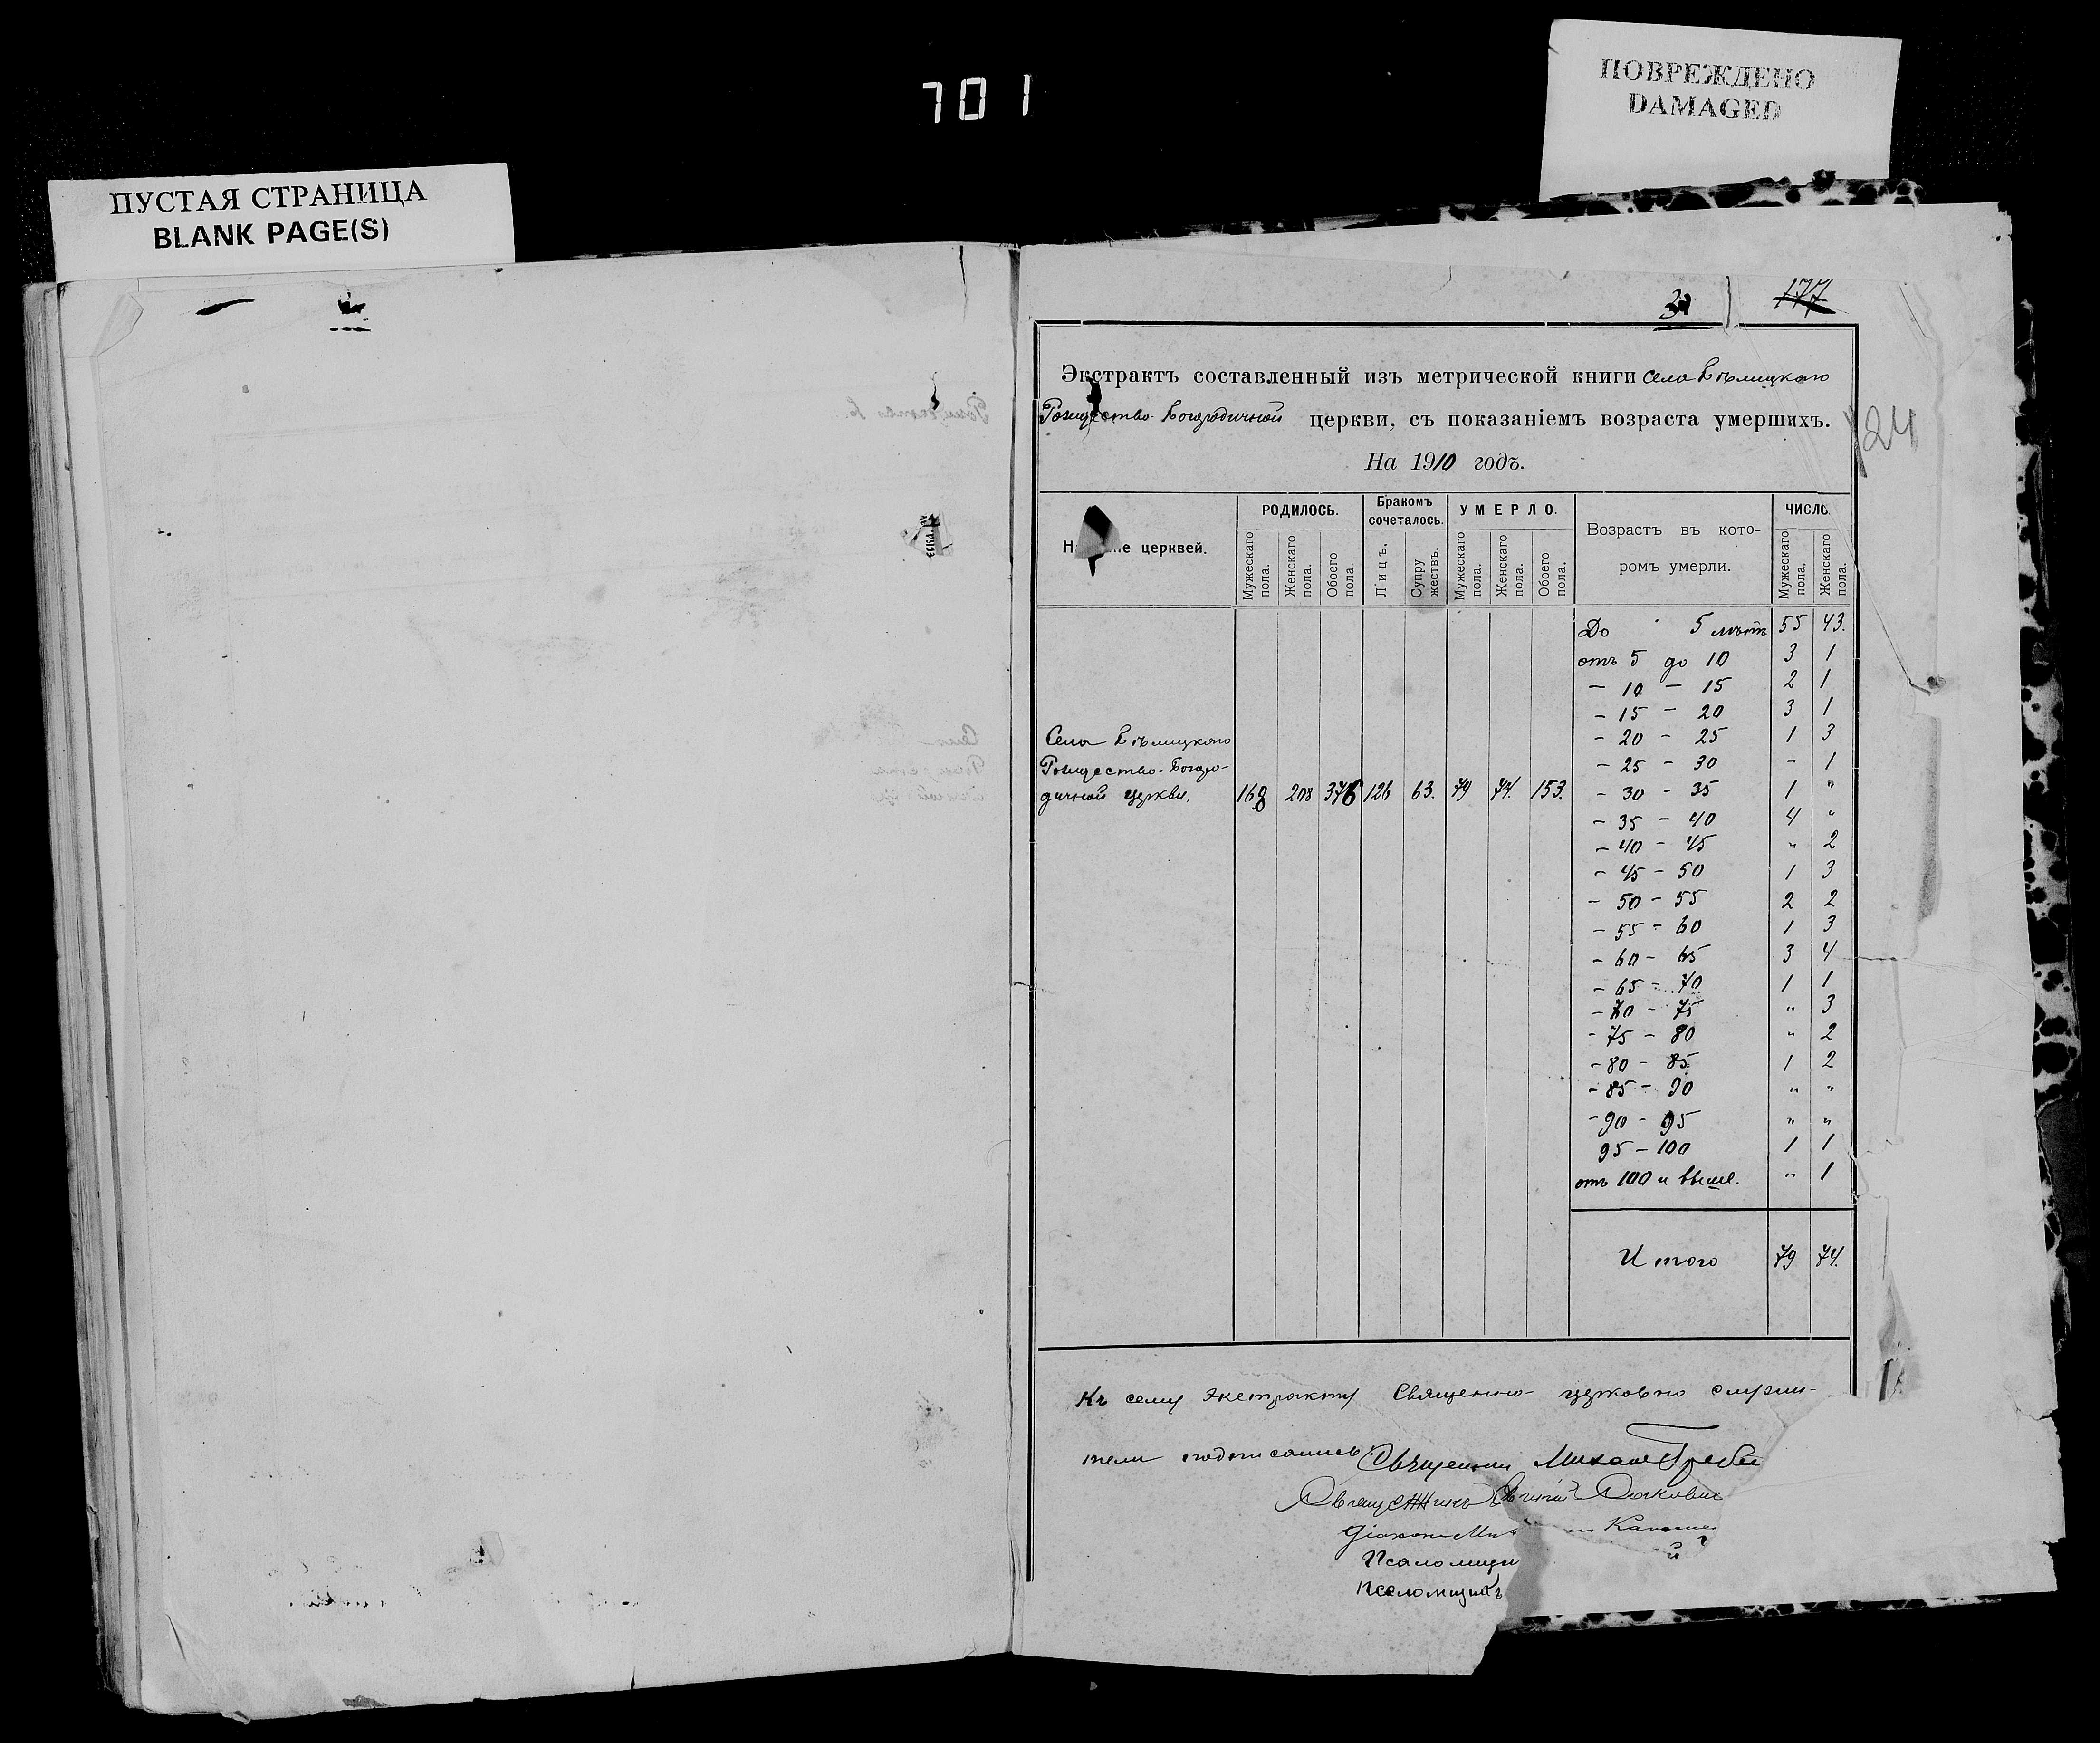 701
ПОВРЕЖДЕНО
DAMAGED
ПУСТАЯ СТРАНИЦА
BLANK PAGE(S)
177
124
Экстрактъ составленный изъ метрической книги Села Бѣлицкаго
Рождество-Богородичной церкви, съ показаніемъ возраста умершихъ.
На 1910 годъ.
церквей.
РОДИЛОСЬ.
Бракомъ сочеталось.
УМЕРЛО.
Возрастъ въ кото-
ромъ умерли.
ЧИСЛО.
Мужескаго пола.
Женскаго пола.
Обоего пола.
Лицъ.
Супружествъ.
Мужескаго пола.
Женскаго пола.
Обоего пола.
Мужескаго пола.
Женскаго пола.
До 5 лѣтъ 55 43.
отъ 5 до 10 3 1
– 10 – 15 2 1
– 15 – 20 3 1
– 20 – 25 1 3
– 25 – 30 – 1
– 30 – 35 1 "
– 35 – 40 4 "
– 40 – 45 " 2
– 45 – 50 1 3
– 50 – 55 2 2
– 55 – 60 1 3
– 60 – 65 3 4
– 65 – 70 1 1
– 70 – 75 " 3
– 75 – 80 " 2
– 80 – 85 1 2
– 85 – 90 " "
– 90 – 95 " "
95 – 100 1 1
отъ 100 и выше. " 1
Села Бѣлицкаго
Рождество-Богоро-
дичной церкви. 168 208 376 126 63. 79 74. 153.
Итого 79 74.
Къ сему экстракту Священно-церковно служи-
тели подписались: Священникъ Михаилъ
Священникъ
Діаконъ
Псаломщи
Псаломщикъ